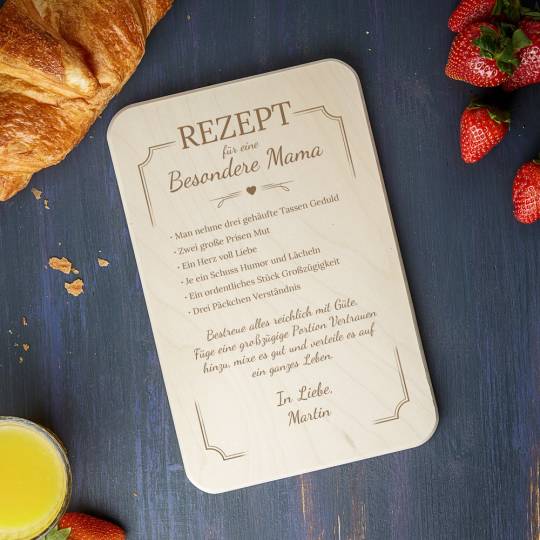 REZEPT
für eine
Besondere Mama
• Man nehme drei gehäufte Tassen Geduld
• Zwei große Prisen Mut
• Ein Herz voll Liebe
• Je ein Schuss Humor und Lächeln
• Ein ordentliches Stück Großzügigkeit
• Drei Päckchen Verständnis
Bestreue alles reichlich mit Güte.
Füge eine großzügige Portion Vertrauen
hinzu, mixe es gut und verteile es auf
ein ganzes Leben.
In Liebe,
Martin